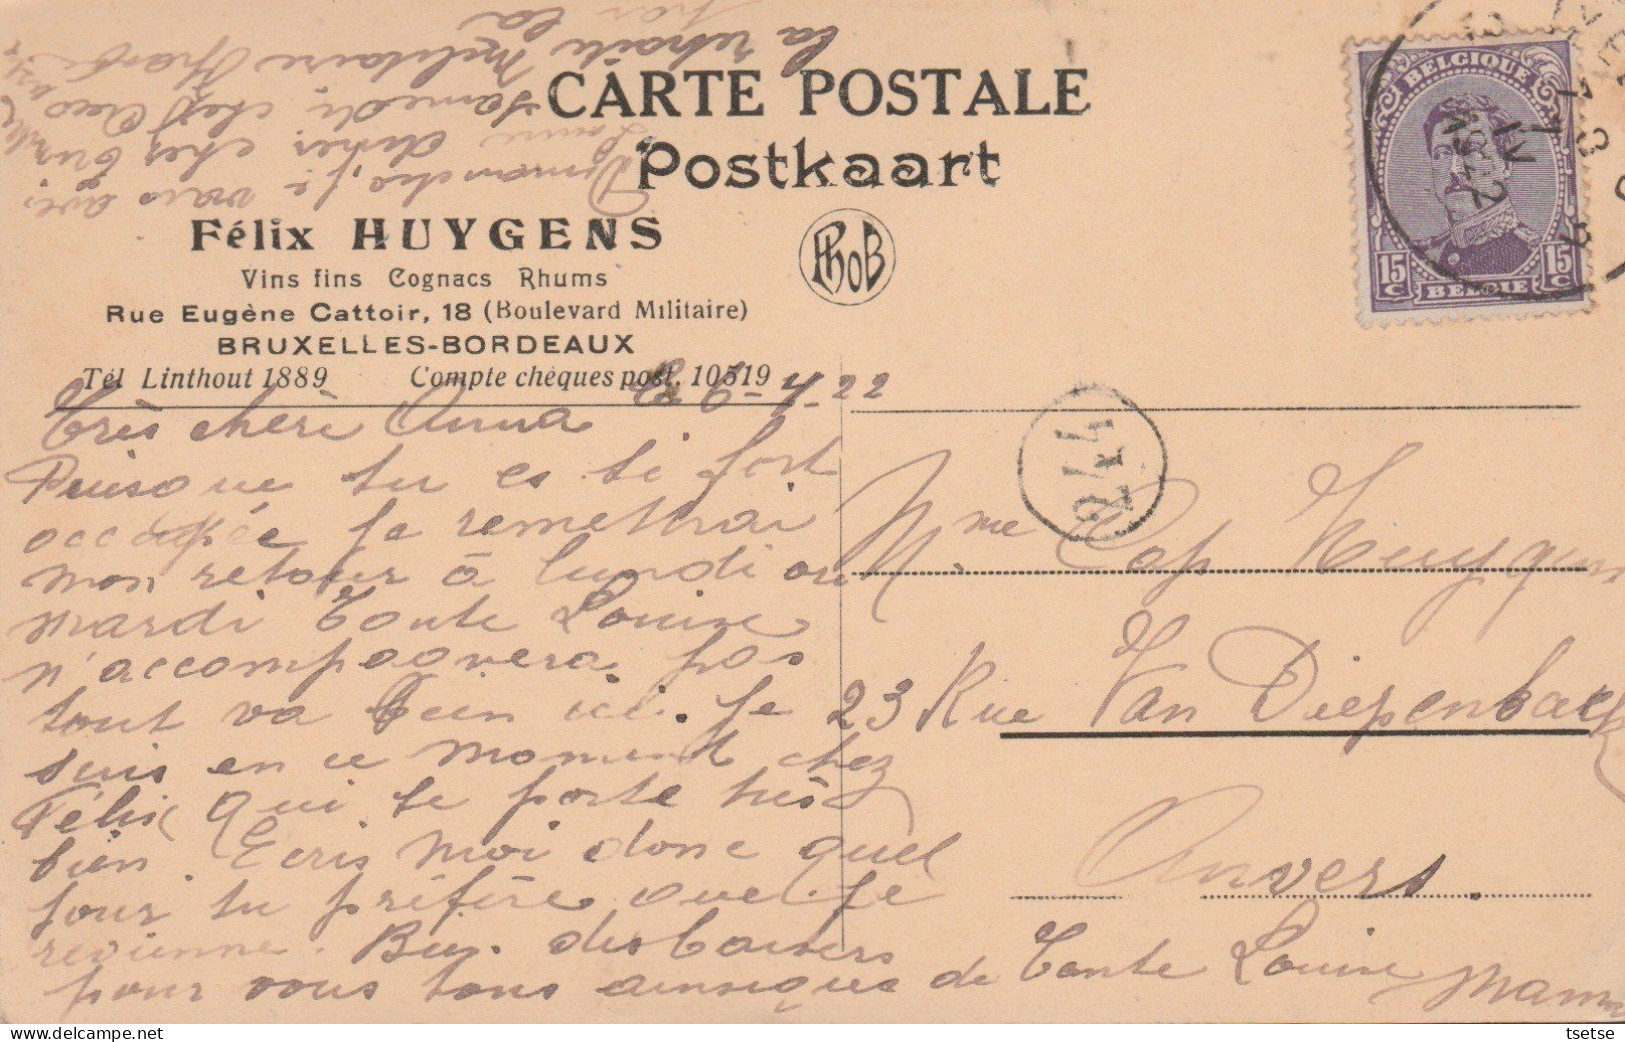 CARTE POSTALE
Postkaart
Félix HUYGENS
Vins fins Cognacs Rhums
Rue Eugène Cattoir, 18 (Boulevard Militaire)
BRUXELLES-BORDEAUX
Tél Linthout 1889 Compte chèques post. 10519
PhoB
BELGIQUE
15 C 15 C
BELGIË
13 IV 1922
6-4-22
Très chère Anna
Puisque tu es si fort
occupée je remettrai
mon retour à lundi ou
mardi Tante Louise
n'accompagnera pas
tout va bien ici. Je
suis en ce moment chez
Félix qui se porte très
bien. Ecris moi donc quel
jour tu préfère que je
revienne. des baisers
pour vous tous ainsi que de Tante Louise Maman
Dimanche, je vais avec
Louise dîner chez
samedi, chez
la retraite militaire
par la
Mme Cap Huygens
23 Rue Van Diepenbeeck
Anvers.
tsetse